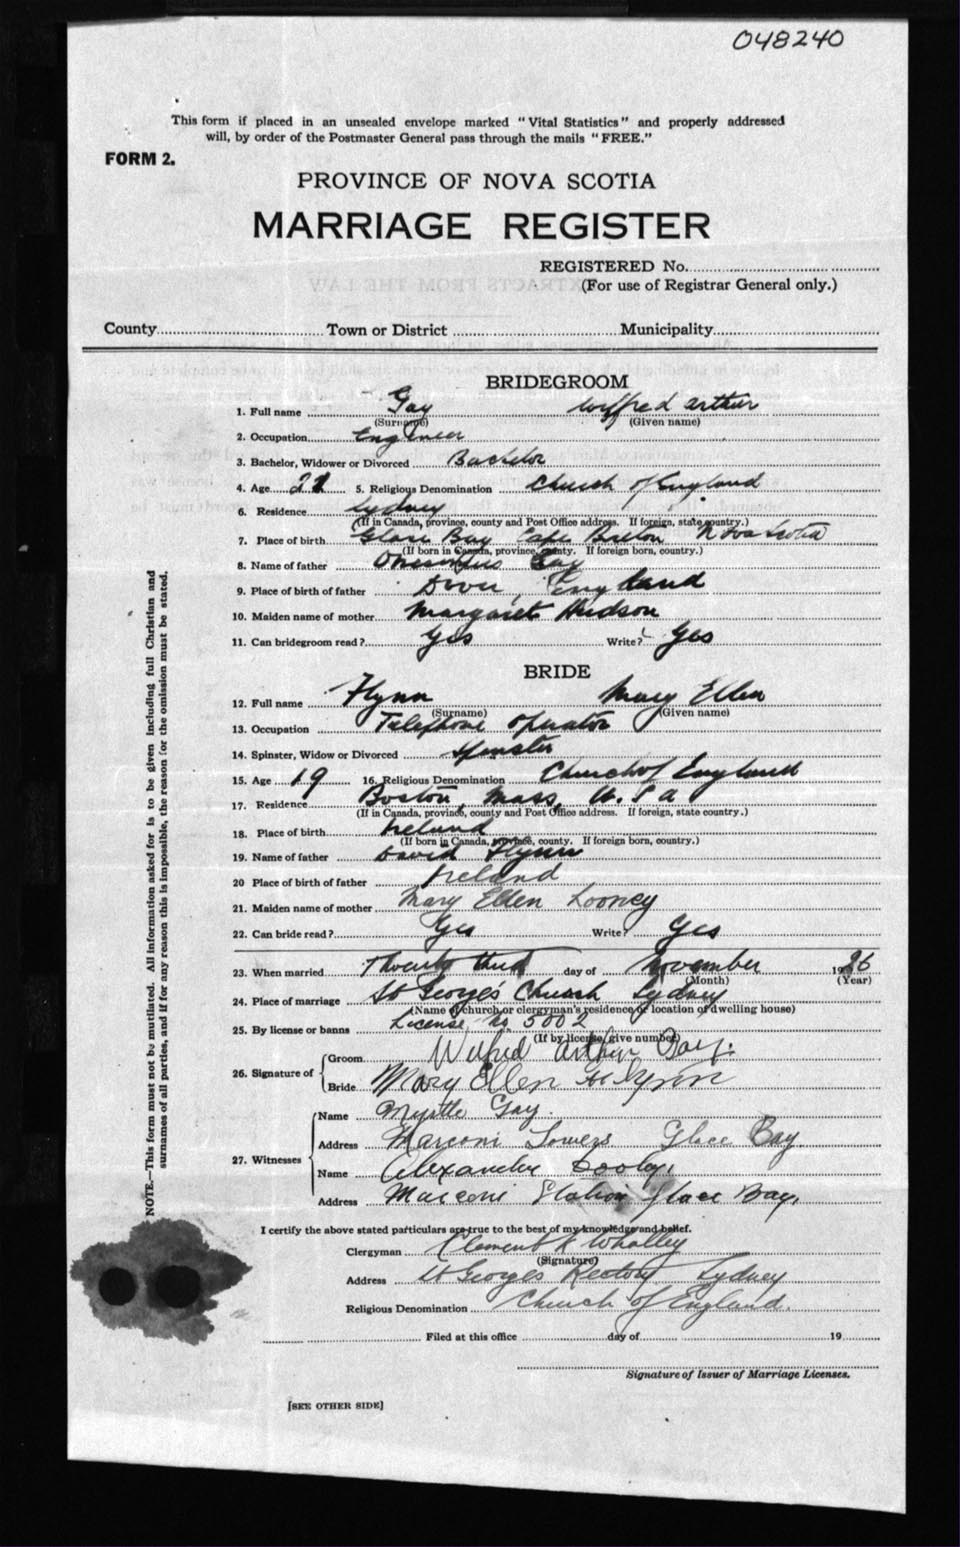 048240
This form if placed in an unsealed envelope marked "Vital Statistics" and properly addressed
will, by order of the Postmaster General pass through the mails "FREE."
FORM 2.
PROVINCE OF NOVA SCOTIA
MARRIAGE REGISTER
REGISTERED No.
(For use of Registrar General only.)
County Town or District Municipality
BRIDEGROOM
1. Full name Gay Wilfred Arthur
(Surname) (Given name)
2. Occupation Engineer
3. Bachelor, Widower or Divorced Bachelor
4. Age 21 5. Religious Denomination Church of England
6. Residence Sydney
(If in Canada, province, county and Post Office address. If foreign, state country.)
7. Place of birth Glace Bay Cape Breton Nova Scotia
(If born in Canada, province, county. If foreign born, country.)
8. Name of father Gay
9. Place of birth of father Dover, England
10. Maiden name of mother Margaret Hudson
11. Can bridegroom read? Yes Write? Yes
BRIDE
12. Full name Flynn Mary Ellen
(Surname) (Given name)
13. Occupation Telephone operator
14. Spinster, Widow or Divorced Spinster
15. Age 19 16. Religious Denomination Church of England
17. Residence Boston, Mass, U.S.a
(If in Canada, province, county and Post Office address. If foreign, state country.)
18. Place of birth Ireland
(If born in Canada, province, county. If foreign born, country.)
19. Name of father David Flynn
20 Place of birth of father Ireland
21. Maiden name of mother Mary Ellen Looney
22. Can bride read? Yes Write? Yes
23. When married Twenty third day of November 1926
(Month) (Year)
24. Place of marriage St George's Church Sydney
(Name of church or clergyman's residence or location of dwelling house)
25. By license or banns License no 5002
(If by license, give number)
26. Signature of Groom Wilfred Arthur Gay.
Bride Mary Ellen Flynn
27. Witnesses Name Myrtle Gay.
Address Marconi Towers Glace Bay
Name Alexander Dooley,
Address Marconi Station Glace Bay,
I certify the above stated particulars are true to the best of my knowledge and belief.
Clergyman Clement K Whalley
(Signature)
Address St Georges Rectory Sydney
Religious Denomination Church of England.
Filed at this office day of 19
Signature of Issuer of Marriage Licenses.
[SEE OTHER SIDE]
NOTE.—This form must not be mutilated. All information asked for is to be given including full Christian and
surnames of all parties, and if for any reason this is impossible, the reason for the omission must be stated.